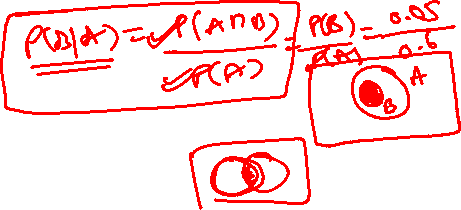 P(B|A) = P(A∩B) / P(A) = P(B) / P(A) = 0.05 / 0.6
A
B